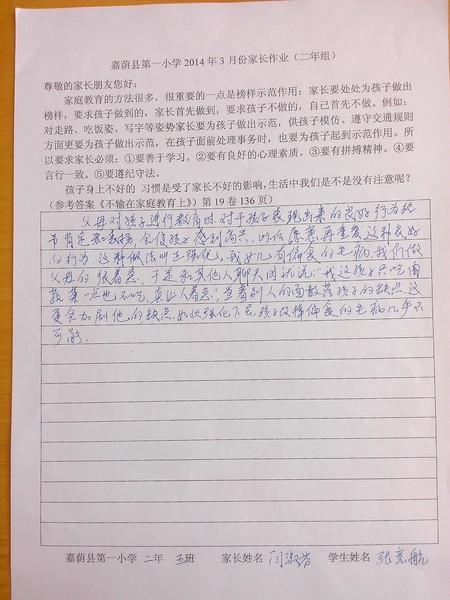 嘉荫县第一小学2014年3月份家长作业（二年组）
尊敬的家长朋友您好：
家庭教育的方法很多，很重要的一点是榜样示范作用：家长要处处为孩子做出
榜样，要求孩子做到的，家长首先做到，要求孩子不做的，自己首先不做。例如：
对走路、吃饭姿、写字等姿势家长要为孩子做出示范，供孩子模仿。遵守交通规则
方面更要为孩子做出示范，在孩子面前处理事务时，也要为孩子起到示范作用。所
以要求家长必须：①要善于学习。②要有良好的心理素质。③要有拼搏精神。④要
言行一致。⑤要遵纪守法。
孩子身上不好的 习惯是受了家长不好的影响，生活中我们是不是没有注意呢？
（参考答案《不输在家庭教育上》）第19卷136页）
父母对孩子进行教育时，对于孩子表现出来的良好行为给
予肯定和表扬，会使孩子感到高兴，以后愿意再重复这种良好
的行为，这种做法叫正强化，我女儿有偏食的毛病，我们做
父母的很着急，于是和其他人聊天时就说："我这孩子只吃肉
蔬菜一点也不吃，真让人着急"，当着别人的面数落孩子的缺点，这
更会加剧他的缺点，如此强化下去，孩子改掉偏食的毛病几乎不
可能。
嘉荫县第一小学 二年 五班 家长姓名 闫淑芳 学生姓名 张亮航